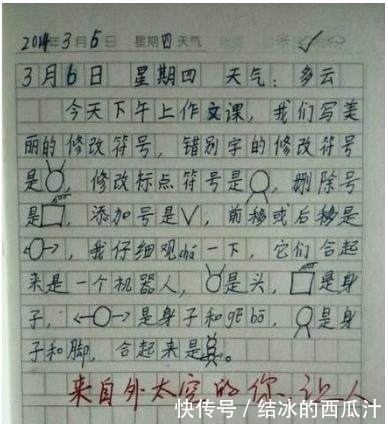 2014年3月6日 星期四天气
3月6日 星期四 天气：多云
今天下午上作文课，我们写美
丽的修改符号，错别字的修改符号
是，修改标点符号是，删除号
是，添加号是√，前移或后移是
，我仔细观chá一下，它们合起
来是一个机器人，是头，是身
子，是身子和gē bō，是身
子和脚，合起来是。
来自外太空的你
快传号/结冰的西瓜汁